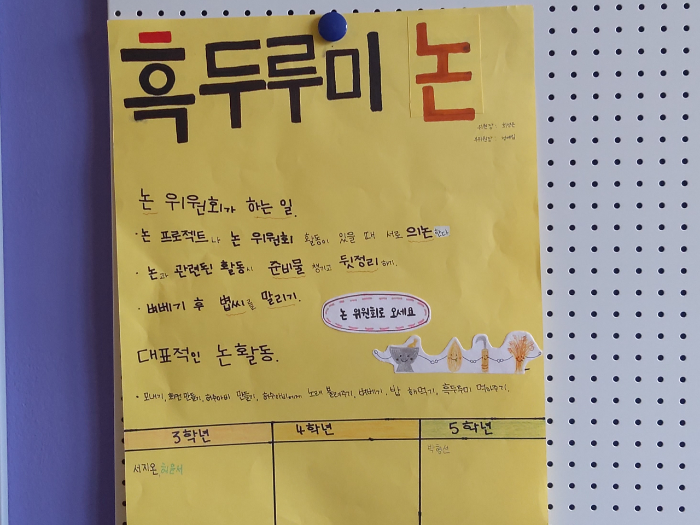 흑두루미 논
위원장 :
부위원장 :
논 위원회가 하는 일.
· 논 프로젝트나 논 위원회 활동이 있을 때 서로 의논한다
· 논과 관련된 활동시 준비물 챙기고 뒷정리하기.
· 벼베기 후 볍씨를 말리기.
논 위원회로 오세요
대표적인 논활동.
· 모내기, 허수아비 만들기, 허수아비에게 노래 불러주기, 벼베기, 밥 해먹기, 흑두루미 먹이주기.
3학년 4학년 5학년
서지온 박형선